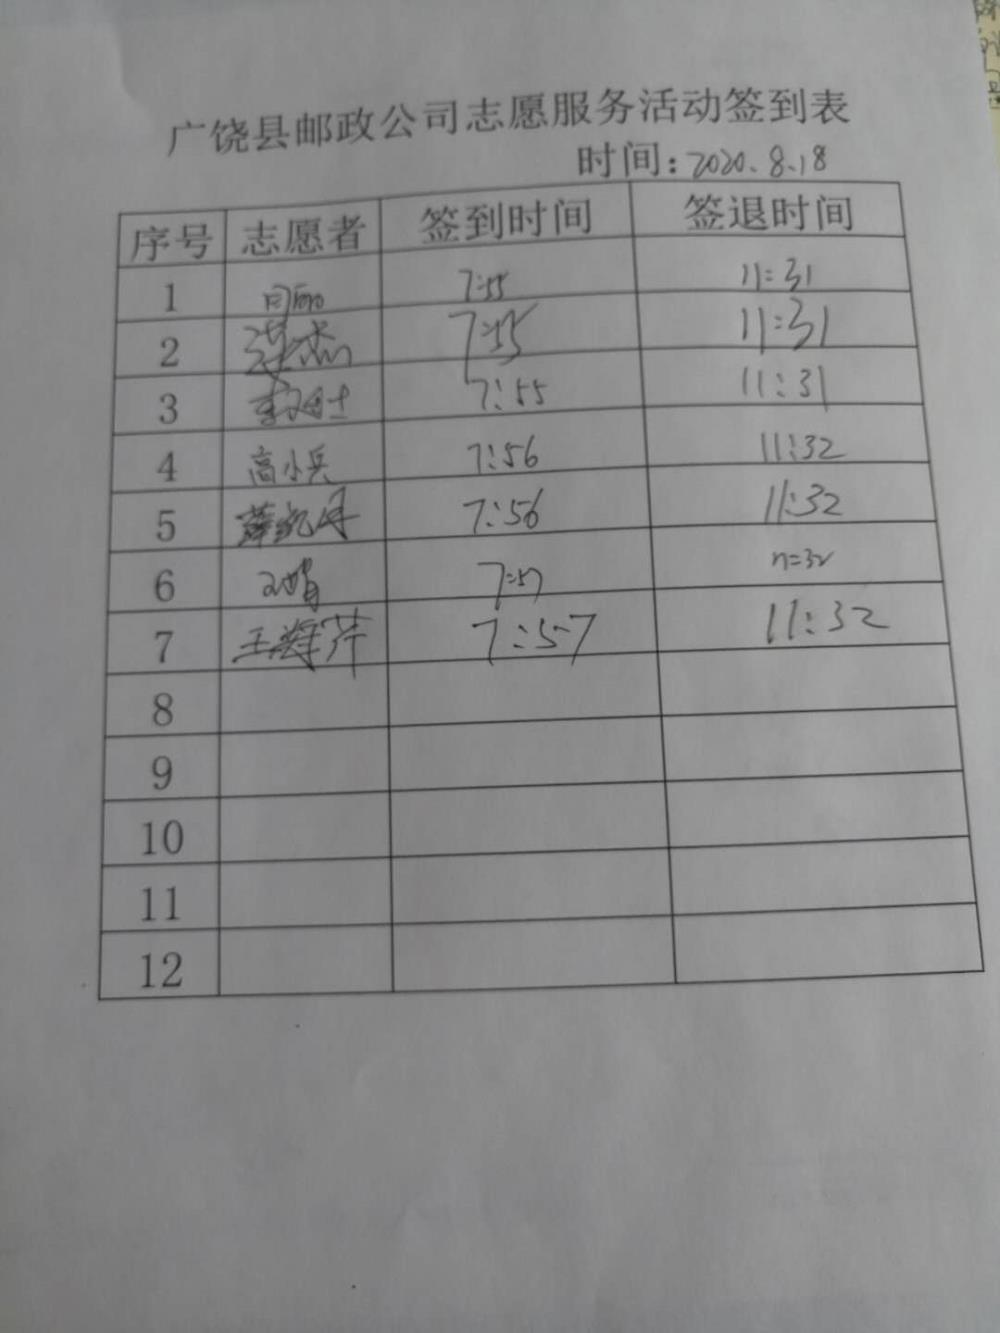 广饶县邮政公司志愿服务活动签到表
时间:2020.8.18
序号 志愿者 签到时间 签退时间
1 7:55 11:31
2 7:55 11:31
3 7:55 11:31
4 高小兵 7:56 11:32
5 7:56 11:32
6 7:57 11:32
7 王海芹 7:57 11:32
8
9
10
11
12